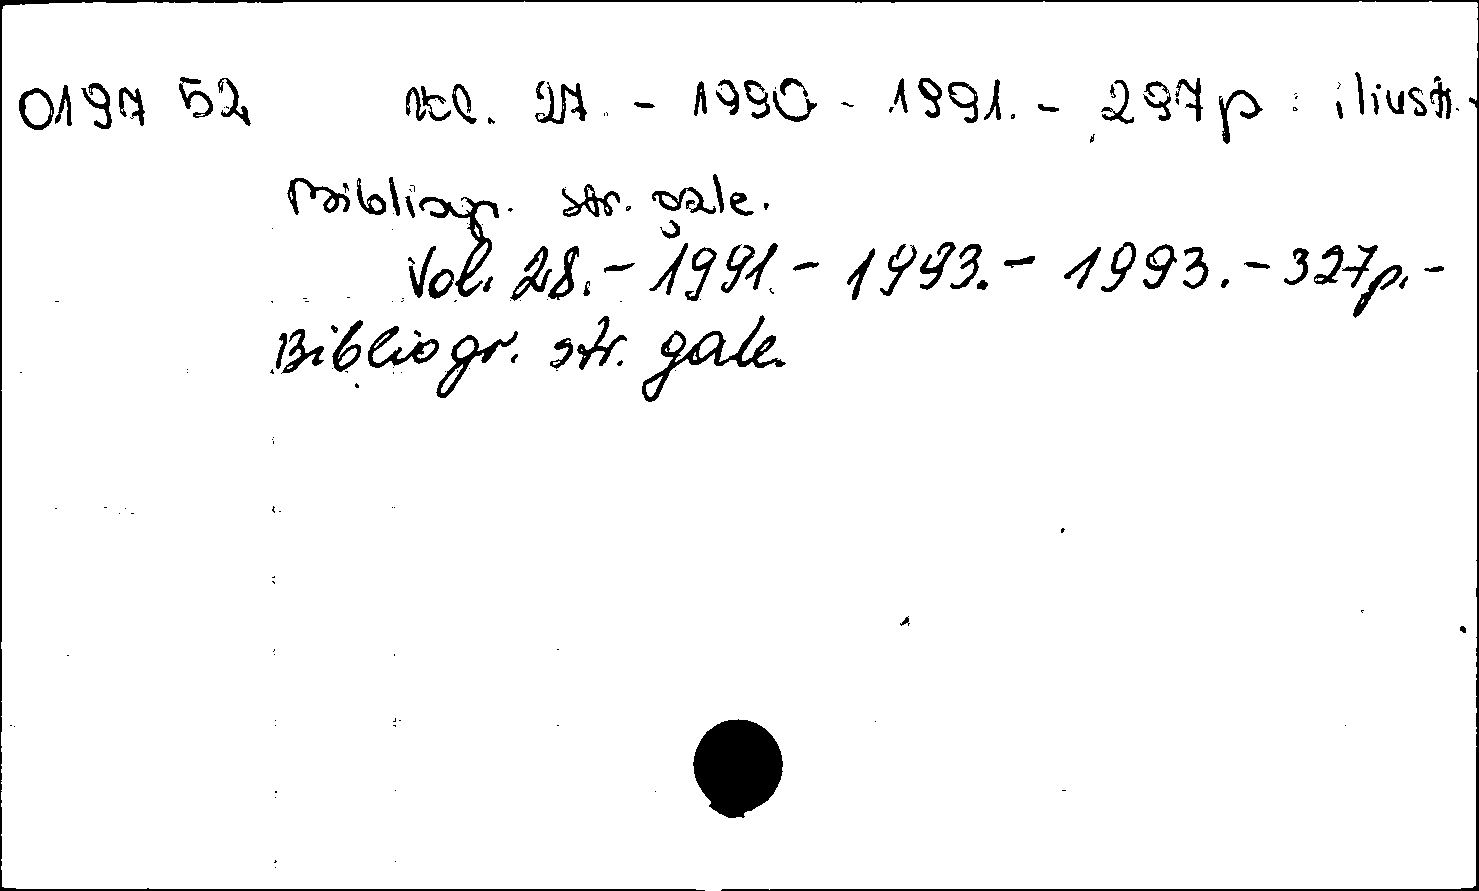 0197 52 Vol. 27. - 1990 - 1991. - 297 p : iliustr. -
Bibliogr. str. gale.
Vol. 28. - 1991. - 1993. - 1993. - 327 p. -
Bibliogr. str. gale.